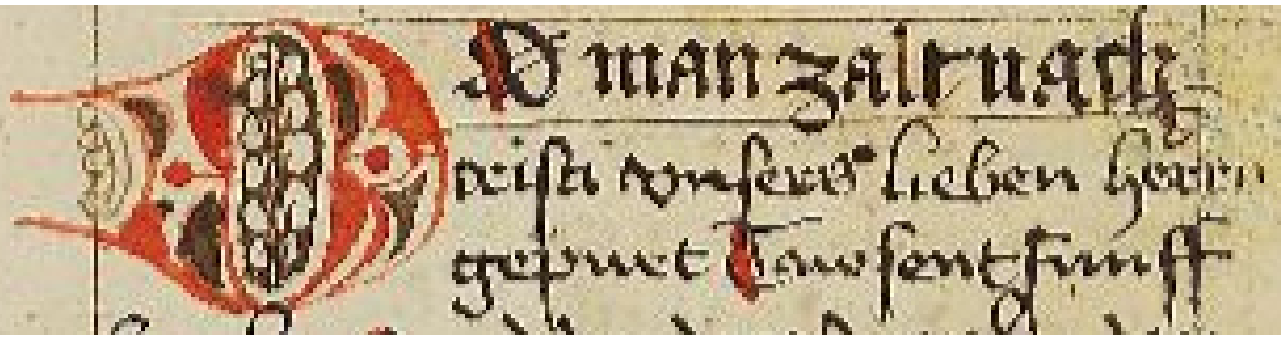 DO man zalt nach
cristi vnsers lieben herren
gepurt Tawsent funff